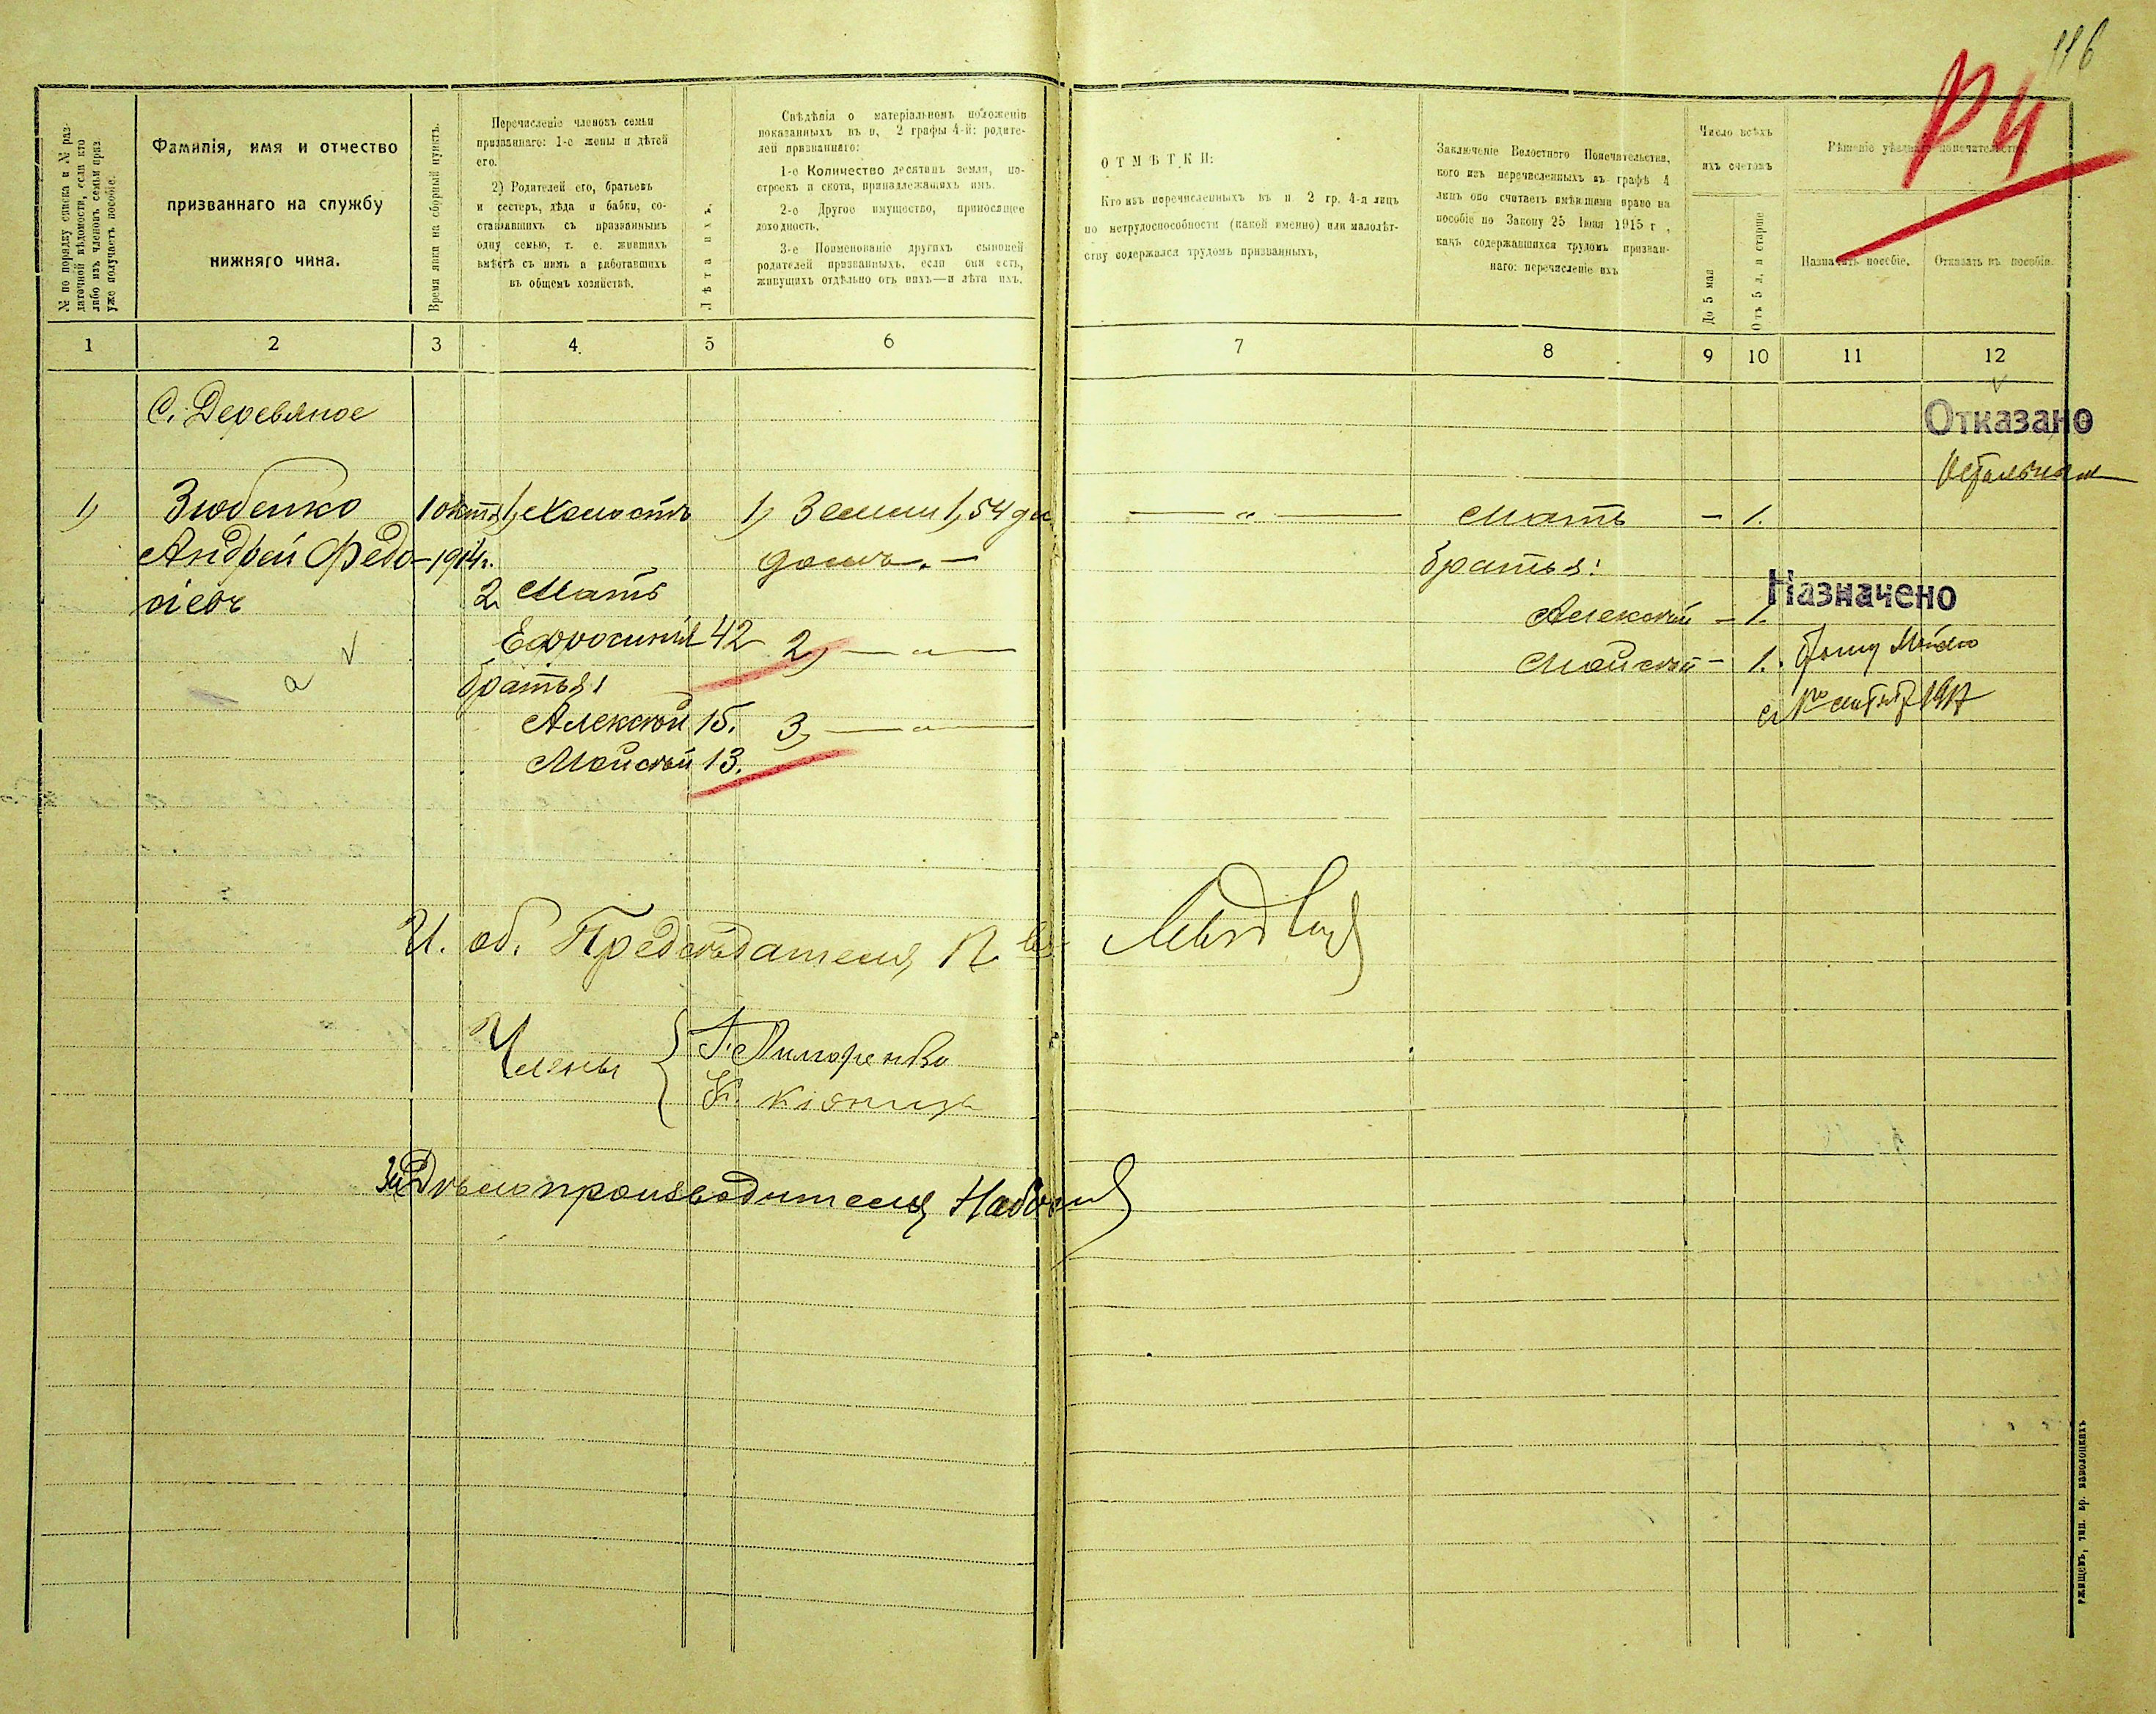 116
№ по порядку списка и № раз-
даточной вѣдомости, если кто
либо изъ членовъ семьи приз.
уже получаетъ пособіе.
Фамилія, имя и отчество
призваннаго на службу
нижняго чина.
Время явки на сборный пунктъ.
Перечисленіе членовъ семьи
призваннаго: 1-е жены и дѣтей
его.
2) Родителей его, братьевъ
и сестеръ, дѣда и бабки, со-
ставлявшихъ съ призваннымъ
одну семью, т. е. жившихъ
вмѣстѣ съ нимъ и работавшихъ
въ общемъ хозяйствѣ.
Лѣта ихъ.
Свѣдѣнія о матеріальномъ положеніи
показанныхъ въ п, 2 графы 4-й: родите-
лей призваннаго:
1-е Количество десятинъ земли, по-
строекъ и скота, принадлежащихъ имъ.
2-е Другое имущество, приносящее
доходность.
3-е Поименованіе другихъ сыновей
родителей призванныхъ, если они есть,
живущихъ отдѣльно отъ нихъ—и лѣта ихъ.
ОТМѢТКИ:
Кто изъ перечисленныхъ въ п 2 гр. 4-я лицъ
по нетрудоспособности (какой именно) или малолѣт-
ству содержался трудомъ призванныхъ,
Заключеніе Волостного Попечительства,
кого изъ перечисленныхъ въ графѣ 4
лицъ оно считаетъ имѣющими право на
пособіе по Закону 25 Іюня 1915 г ,
какъ содержавшихся трудомъ призван-
наго: перечисленіе ихъ
Число всѣхъ
ихъ счетомъ
До 5 мая
Отъ 5 л, и старше
Рѣшеніе уѣзднаго попечительства,
Назначать пособіе.
Отказать въ пособіи.
1 2 3 4. 5 6 7 8 9 10 11 12
С. Деревяное
Отказано
Остальным
1) Зюбенко 1 окт. 1) Холостъ 1) Земли 1,54 дес — „ — Мать – 1.
Андрей Федо- 1914г. домъ. — братья:
тіевъ 2 Мать Алексѣй – 1. Назначено
Евфросинія 42 2) — „ — Мойсѣй – 1.
братья:
с 1го сентября 1917
Алексѣй 15. 3, — „ —
Мойсѣй 13.
И. об. Предсѣдателя
Члены
Дѣлопроизводителя
ржищевъ, тип. бр. наволоцкихъ